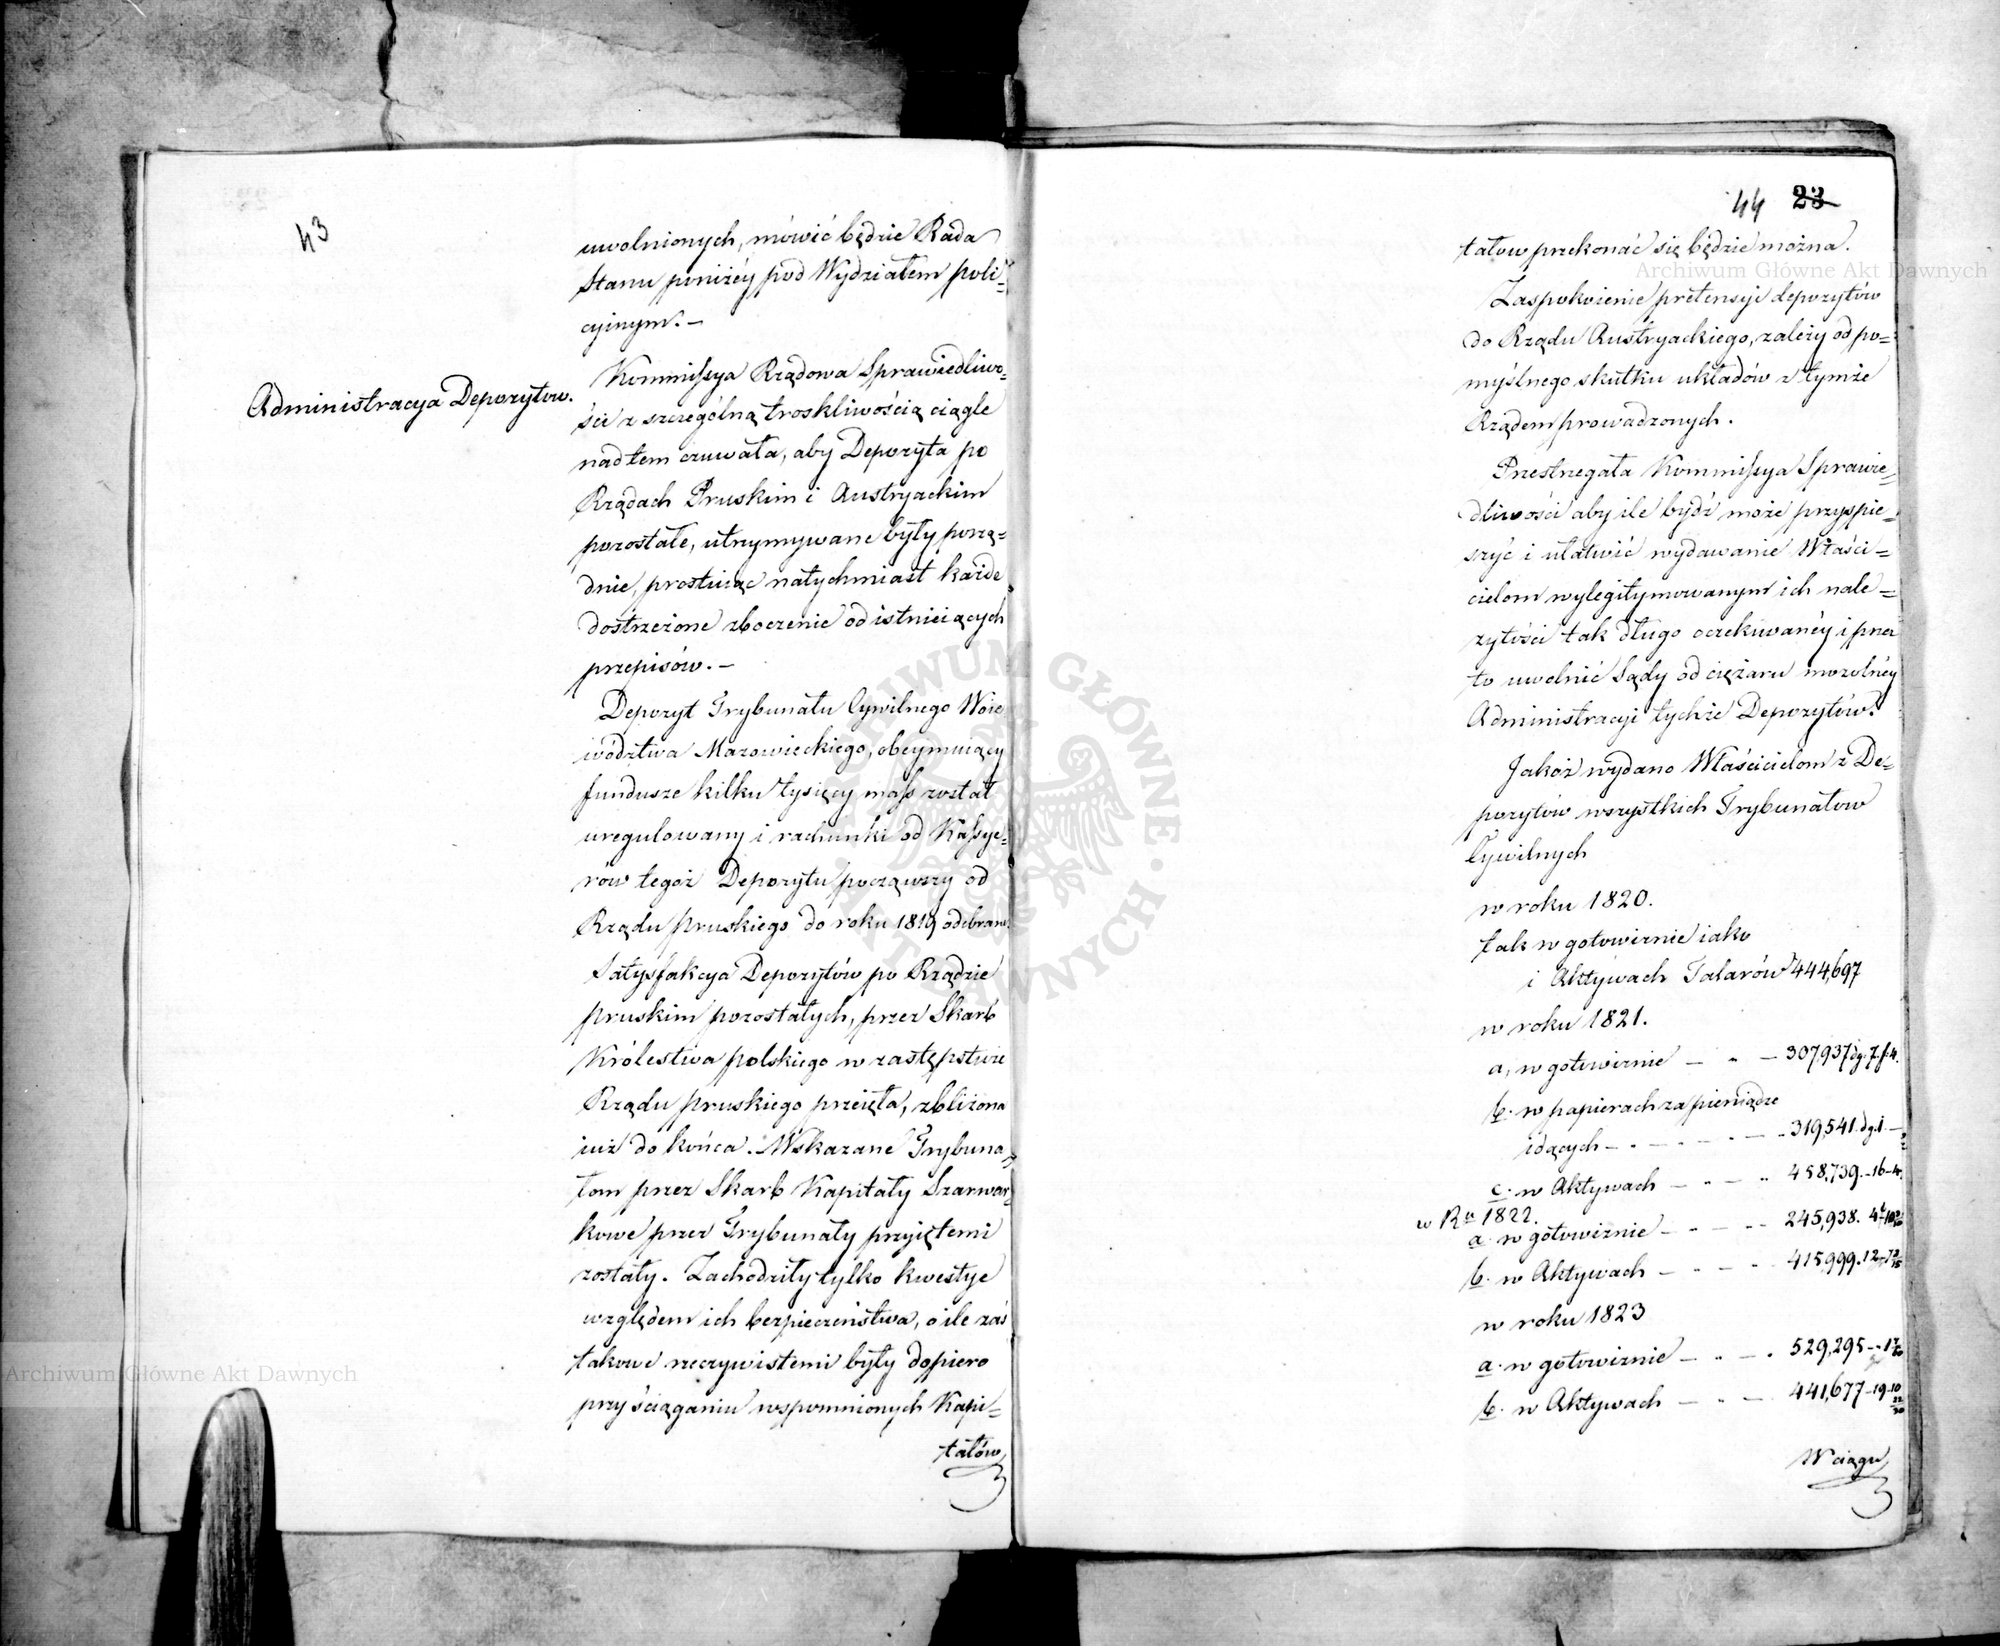 43
uwolnionych, mówić będzie Rada
Stanu poniżéy pod Wydziałem poli=
cyinym. —
Administracya Depozytow.
Kommissya Rządowa Sprawiedliwo=
ści z szczególną troskliwością ciągle
nad tem czuwała, aby Depozyta po
Rządach Pruskim i Austryackim
pozostałe, utrzymywane były porzą=
dnie, prostuiąc natychmiast każde
dostrzeżone zboczenie od istnieiących
przepisów. —
Depozyt Trybunału Cywilnego Woie
wództwa Mazowieckiego, obeymuiący
fundusze kilku tysięcy mass został
uregulowany i rachunki od Kassye=
rów tegoż Depozytu począwszy od
Rządu pruskiego do roku 1819 odebrane.
Satysfakcya Depozytów po Rządzie
pruskim pozostałych, przez Skarb
Królestwa polskiego w zastępstwie
Rządu pruskiego przeięta, zbliżona
iuż do końca. Wskazane Trybuna=
łom przez Skarb Kapitały Szarwar=
kowe przez Trybunały przyiętemi
zostały. Zachodziły tylko kwestye
względem ich bezpieczeństwa, o ile zaś
takowe rzeczywistemi były dopiero
przy ściąganiu wspomnionych Kapi=
tałów
44 23
tałow przekonać się będzie można.
Zaspokoienie pretensyi depozytów
do Rządu Austryackiego, zależy od po=
myślnego skutku układów z tymże
Rządem prowadzonych.
Przestrzegała Kommissya Sprawie=
dliwości aby ile bydź może przyspie=
szyć i ułatwić wydawanie Właści=
cielom wylegitymowanym ich nale=
żytości tak długo oczekiwanéy i przez
to uwolnić Sądy od ciężaru mozolnéy
Administracyi tychże Depozytów.
Jakoż wydano Właścicielom z De=
pozytów wszystkich Trybunałow
Cywilnych
w roku 1820.
tak w gotowiznie iako
i Aktywach Talarów 444,697
w roku 1821.
a, w gotowiznie — " — 307,937 dg. 7. f. 4.
b. w papierach za pieniądze
idących — " — " — 319,541. dg. 1. —
c. w Aktywach — " — " 458,739. — 16 — 4.
w Ru 1822.
a. w gotowiznie — " — " 245,938.
b. w Aktywach — " — " 415,999. 12
w roku 1823
a. w gotowiznie — " — . 529,295
b. w Aktywach — " — 441,677 — 19
W ciągu
Archiwum Główne Akt Dawnych
Archiwum Główne Akt Dawnych
ARCHIWUM GŁÓWNE AKT DAWNYCH